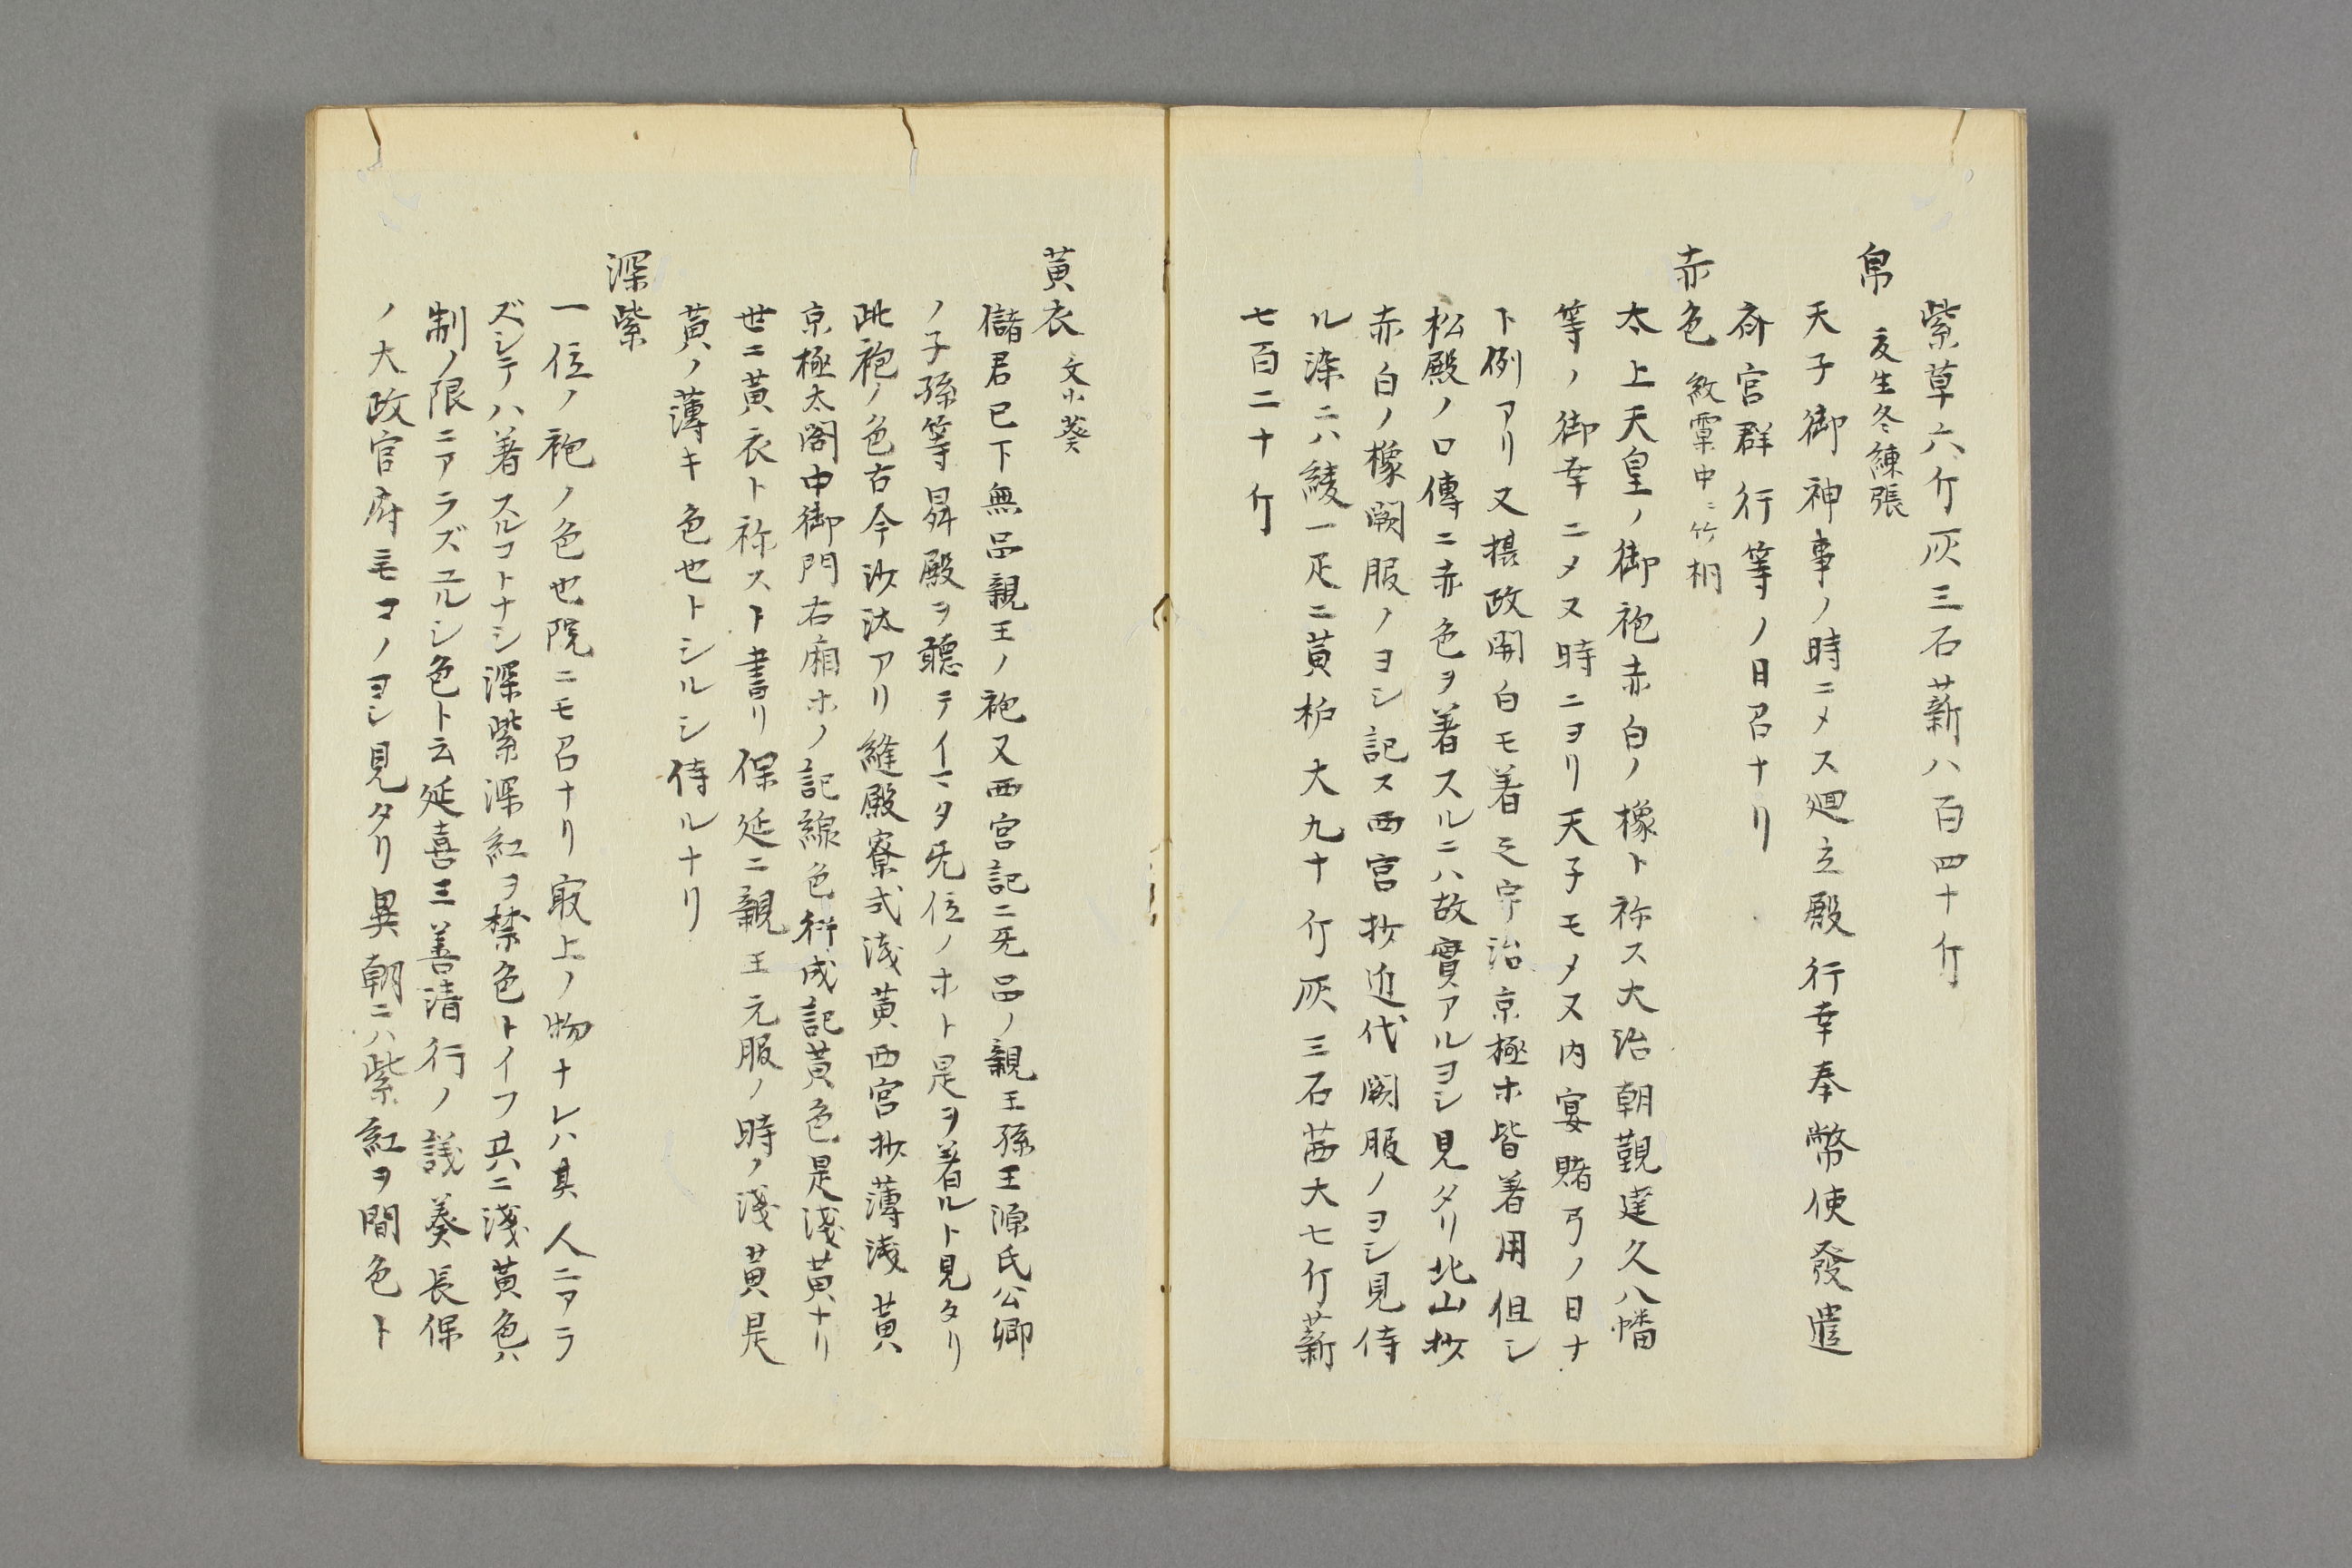 紫草六斤灰三石薪八百四十斤
帛 夏生冬練張
天子御神事ノ時ニメス廻立殿行幸奉幣使發遣
斎宮群行等ノ日召ナリ
赤色 紋窠中ニ竹桐
太上天皇ノ御袍赤白ノ橡ト称ス大治朝覲建久八幡
等ノ御幸ニメス時ニヨリ天子モメス内宴賭弓ノ日ナ
ト例アリ又摂政関白モ着之宇治京極ホ皆着用但シ
松殿ノ口傳ニ赤色ヲ着スルニハ故實アルヨシ見タリ北山抄
赤白ノ橡闕服ノヨシ記ス西宮抄近代闕服ノヨシ見侍
ル染ニハ綾一疋ニ黄栌大九十斤灰三石茜大七斤薪
七百二十斤
黄衣 文小葵
儲君已下無品親王ノ袍又西宮記ニ旡品ノ親王孫王源氏公卿
ノ子孫等昇殿ヲ聽テイマタ旡位ノホト是ヲ着ルト見タリ
此袍ノ色古今沙汰アリ縫殿寮式浅黄西宮抄薄浅黄
京極太閤中御門右廂ホノ記線色 成記黄色是淺黄ナリ
世ニ黄衣ト称スト書リ保延ニ親王元服ノ時ノ淺黄是
黄ノ薄キ色也トシルシ侍ルナリ
深紫
一位ノ袍ノ色也院ニモ召ナリ㝡上ノ物ナレハ其人ニアラ
ズシテハ着スルコトナシ深紫深紅ヲ禁色トイフ共ニ淺黄色ハ
制ノ限ニアラズユルシ色ト云延喜三善清行ノ議奏長保
ノ大政官府ニモコノヨシ見タリ異朝ニハ紫紅ヲ間色ト